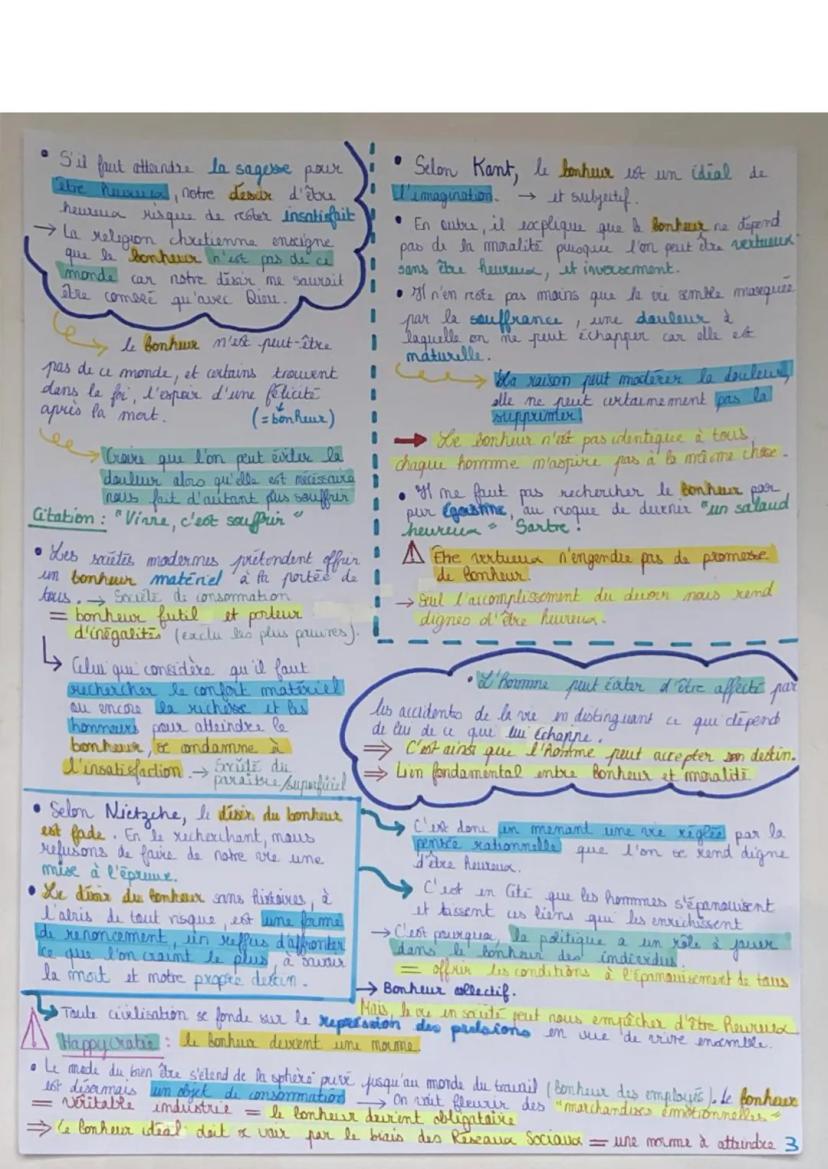 • S'il faut atteindre la sagesse pour
être heureux, notre désir d'être
heureux risque de rester insatisfait
→ La religion chrétienne enseigne
que le bonheur n'est pas de ce
monde car notre désir ne saurait
être comblé qu'avec Dieu.
le bonheur n'est peut-être
pas de ce monde, et certains trouvent
dans la foi, l'espoir d'une félicité
après la mort. (= bonheur)
Croire que l'on peut éviter la
douleur alors qu'elle est nécessaire
nous fait d'autant plus souffrir
Citation : "Vivre, c'est souffrir"
• Les sociétés modernes prétendent offrir
un bonheur matériel à la portée de
tous. → Société de consommation
= bonheur futil et porteur
d'inégalités (exclu les plus pauvres).
↳ Celui qui considère qu'il faut
rechercher le confort matériel
ou encore la richesse et les
honneurs pour atteindre le
bonheur, se condamne à
l'insatisfaction. → Société du
paraître/superficiel
• Selon Kant, le bonheur est un idéal de
l'imagination. → et subjectif.
• En outre, il explique que le bonheur ne dépend
pas de la moralité puisque l'on peut être vertueux
sans être heureux, et inversement.
• Il n'en reste pas moins que la vie semble masquée
par la souffrance, une douleur à
laquelle on ne peut échapper car elle est
naturelle.
La raison peut modérer la douleur,
elle ne peut certainement pas la
supprimer
→ Le bonheur n'est pas identique à tous,
chaque homme n'aspire pas à la même chose.
• Il ne faut pas rechercher le bonheur par
pur égoïsme, au risque de devenir "un salaud
heureux" Sartre.
⚠ Etre vertueux n'engendre pas de promesse
de bonheur.
→ Seul l'accomplissement du devoir nous rend
dignes d'être heureux.
• L'homme peut éviter d'être affecté par
les accidents de la vie en distinguant ce qui dépend
de lui de ce qui lui échappe.
⇒ C'est ainsi que l'homme peut accepter son destin.
⇒ Lien fondamental entre Bonheur et moralité
• Selon Nietzche, le désir du bonheur
est fade. En le recherchant, nous
refusons de faire de notre vie une
mise à l'épreuve.
• Le désir du bonheur sans histoires, à
l'abris de tout risque, est une forme
de renoncement, un reffus d'affronter
ce que l'on craint le plus, à savoir
la mort et notre propre destin.
C'est donc en menant une vie réglée par la
pensée rationnelle que l'on se rend digne
d'être heureux.
C'est en Cité que les hommes s'épanouissent
et tissent ces liens qui les enrichissent
→ C'est pourquoi, la politique a un rôle à jouer
dans le bonheur des individus
= offrir les conditions à l'épanouissement de tous
→ Bonheur collectif.
Mais, la vie en société peut nous empêcher d'être heureux
Toute civilisation se fonde sur la repression des pulsions en vue de vivre ensemble.
⚠ Happycratie : le bonheur devient une norme
• Le mode du bien être s'étend de la sphère privé jusqu'au monde du travail (bonheur des employés). Le bonheur
est désormais un objet de consommation → On voit fleurir des "marchandises émotionnelles"
= véritable industrie = le bonheur devient obligatoire
⇒ Ce bonheur idéal doit se voir par le biais des Réseaux Sociaux = une norme à atteindre 3